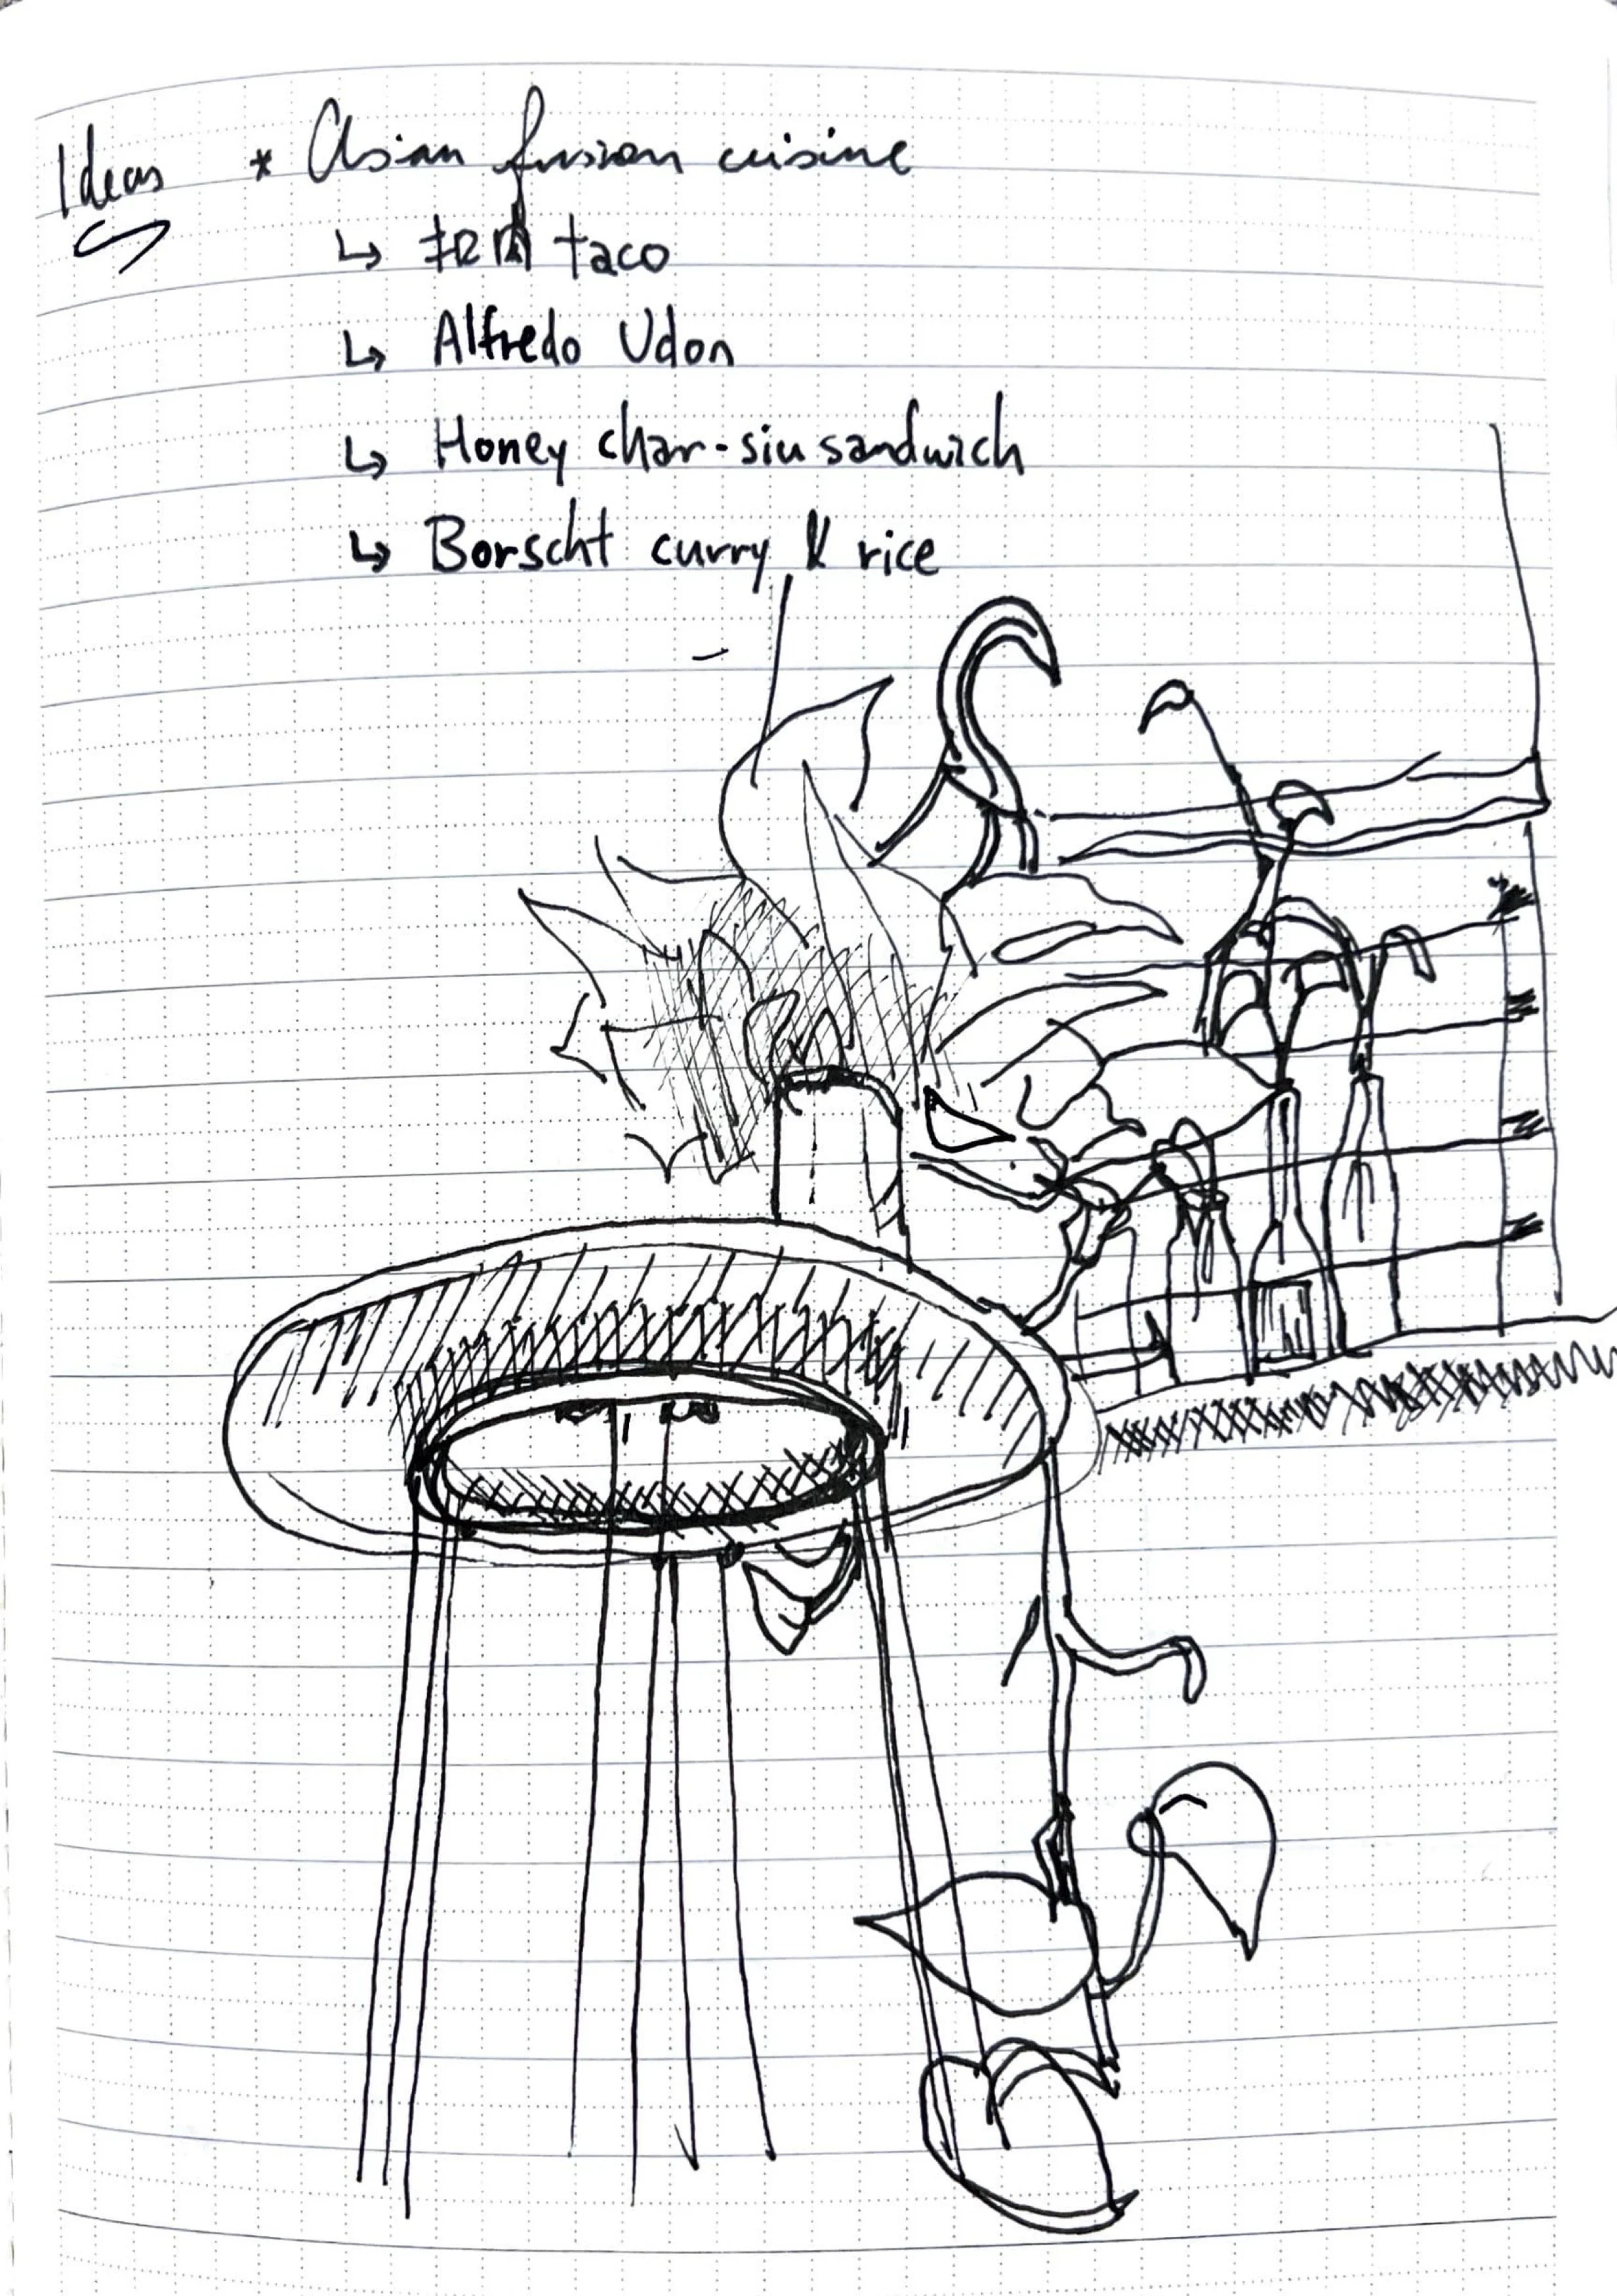 Ideas * Asian fusion cuisine
↳ 肉 taco
↳ Alfredo Udon
↳ Honey char-siu sandwich
↳ Borscht curry & rice